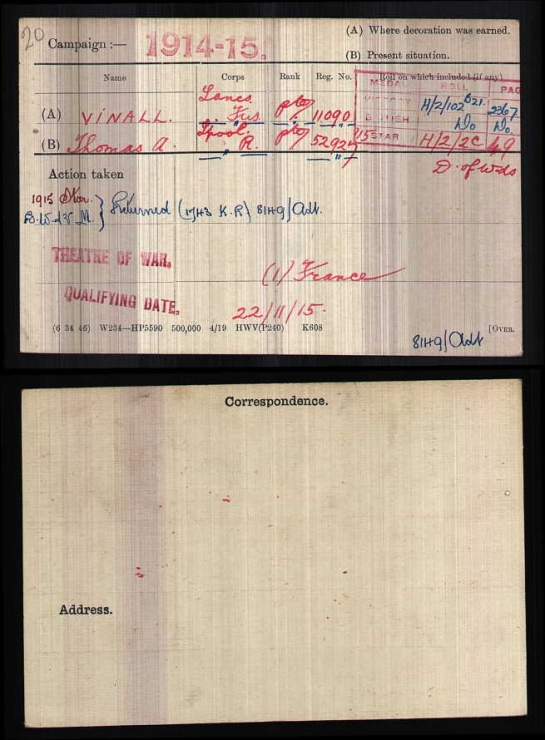 20
(A) Where decoration was earned.
Campaign :— 1914-15.
(B) Present situation.
Name Corps Rank Reg. No. Roll on which included (if any)
MEDAL ROLL PAGE
Lancs
(A) VINALL. Fus. Pte 11090 VICTORY H/2/102 B21. 2367
BRITISH Do Do.
(B) Thomas A. L'pool R. Pte 52927 15 STAR H/2/2C 49
D. of Wds
Action taken
1915 Star.
B.W. & V.M. } Returned (1743 K.R) 8149/Adt.
THEATRE OF WAR. (1) France
QUALIFYING DATE. 22/11/15.
(6 34 46) W234—HP5590 500,000 4/19 HWV(P240) K608
[Over.
8149/Adt
Correspondence.
Address.